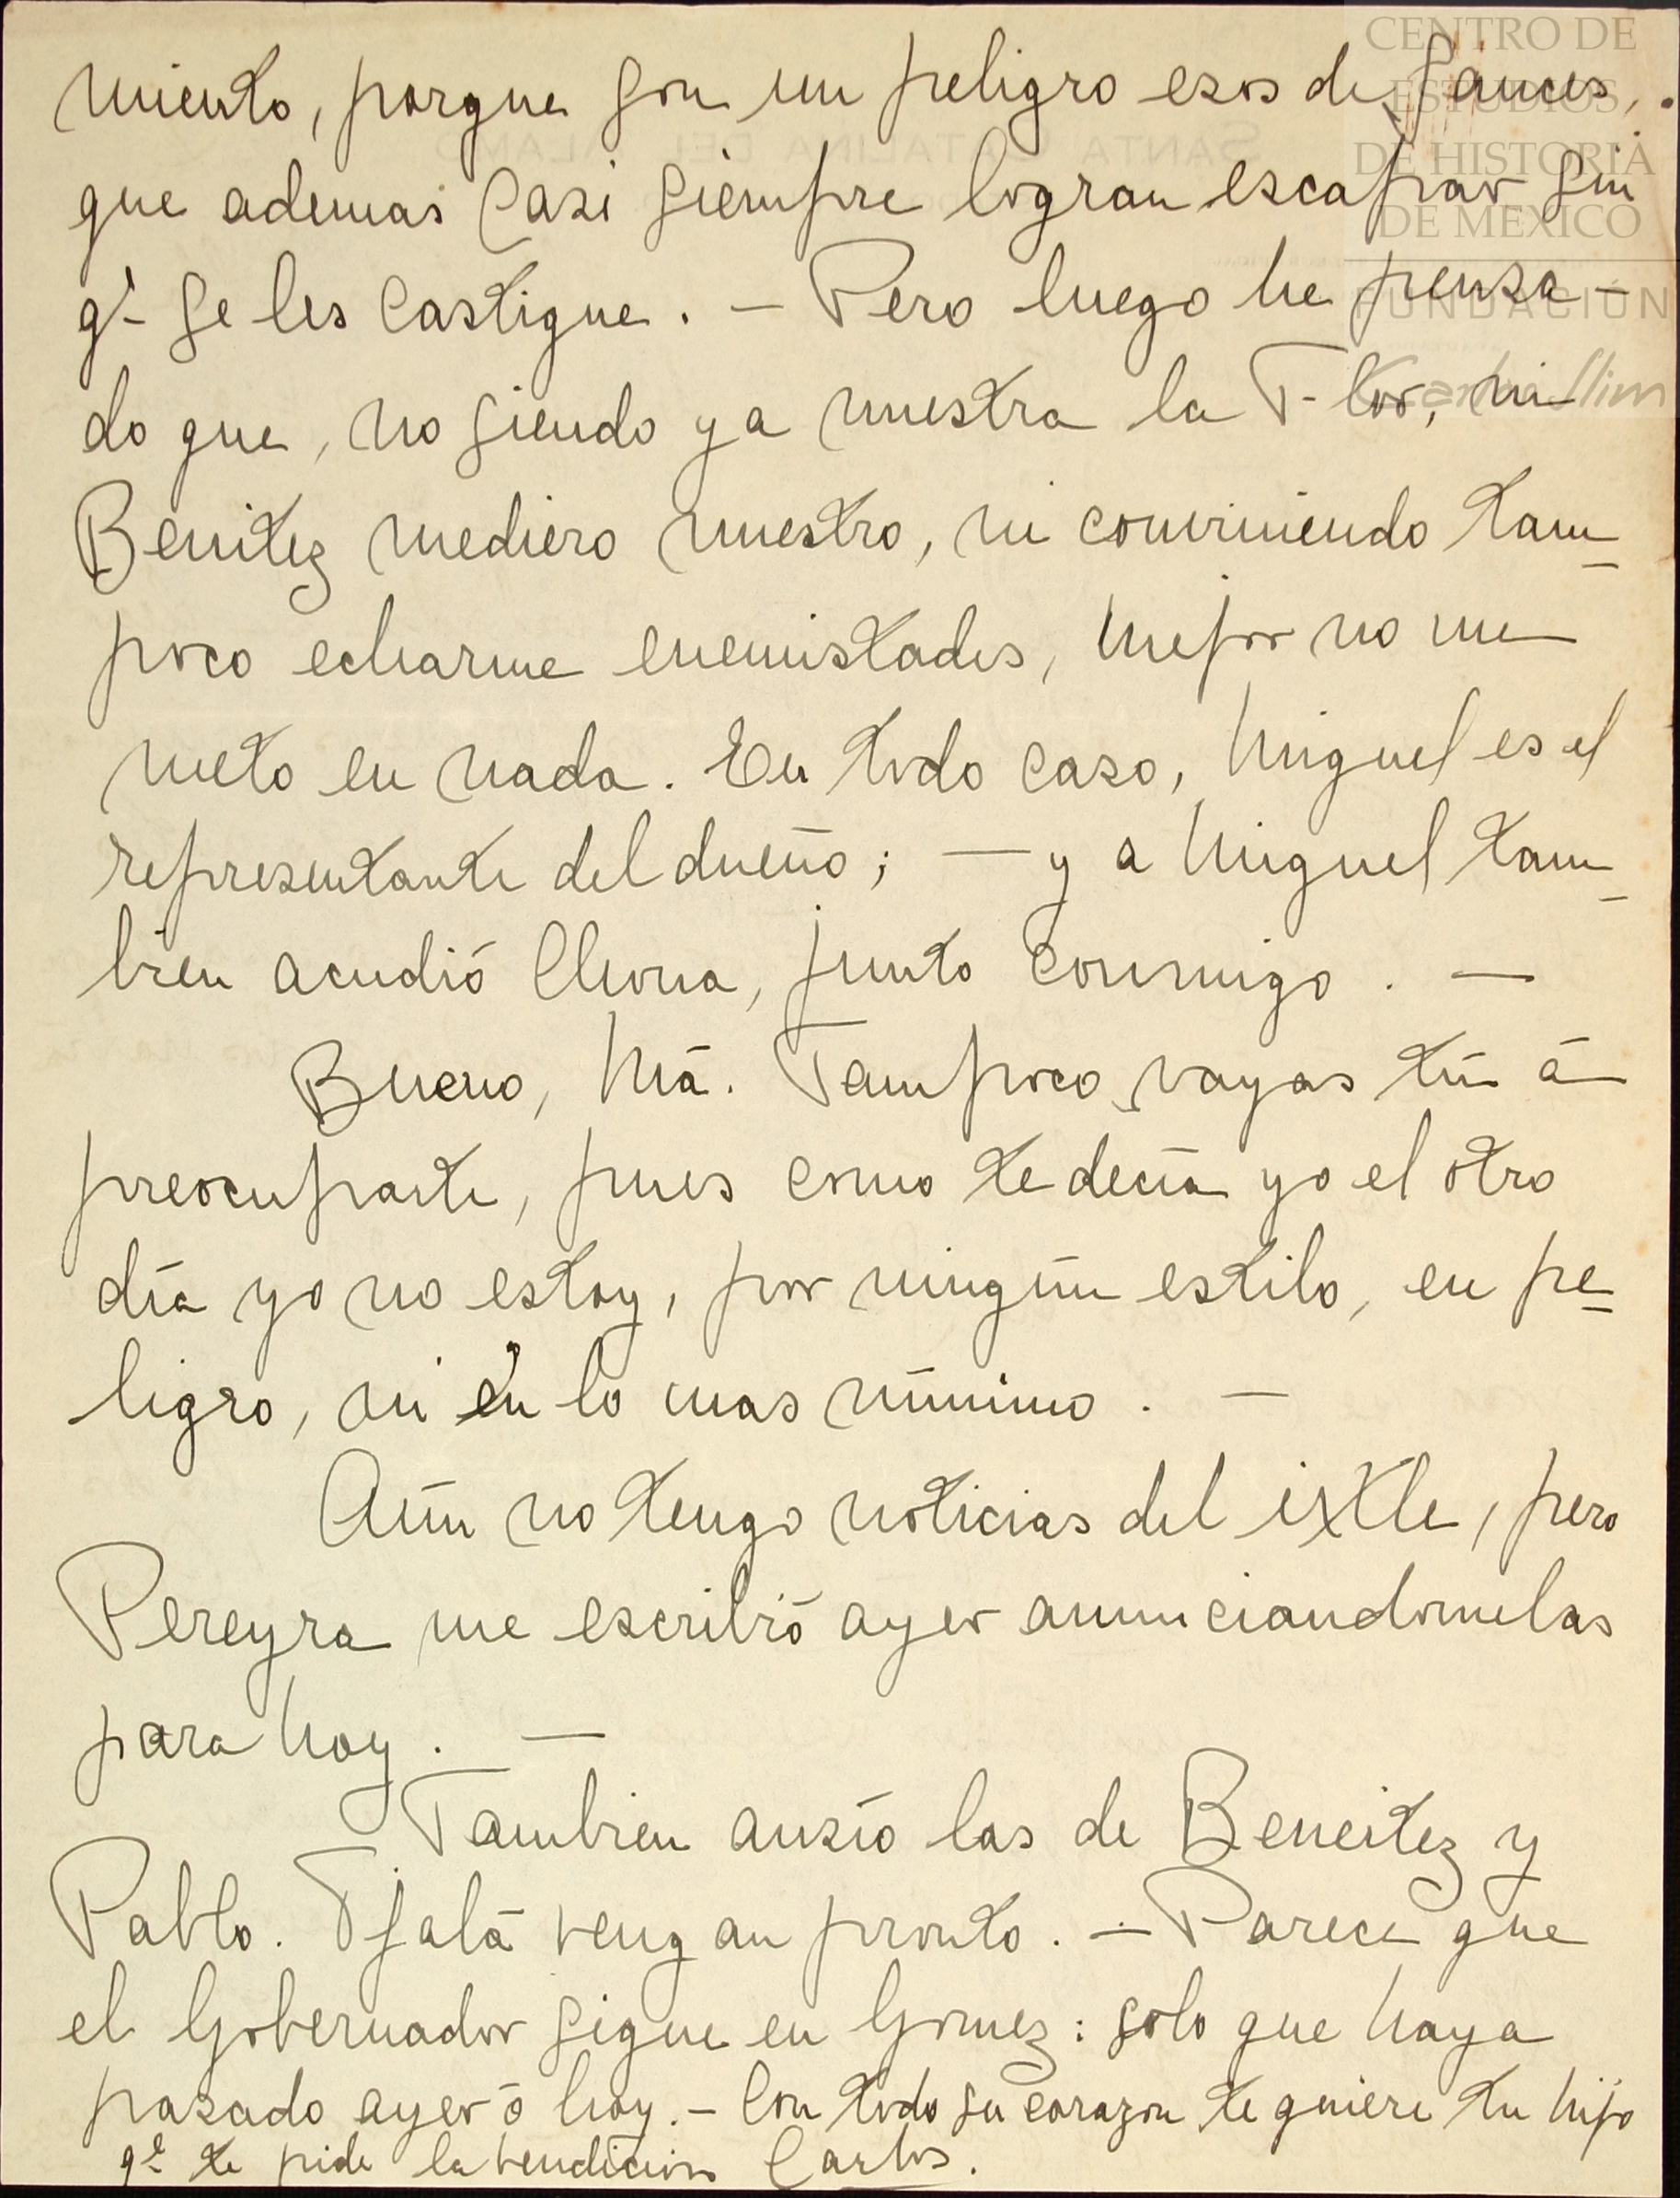 miento, porque son un peligro esos de Sauces,
que ademas casi siempre logran escapar sin
qe se les castigue. — Pero luego he pensa-
do que, no siendo ya nuestra la T- lor, ni
Benitez mediero nuestro, ni conviniendo tam-
poco echarme enemistades, mejor no me
meto en nada. En todo caso, Miguel es el
representante del dueño; — y a Miguel tam-
bien acudió Chona, junto conmigo. —
Bueno, Má. Tampoco vayas tú á
preocuparte, pues como te decía yo el otro
día yo no estoy, por ningún estilo, en pe-
ligro, ni en lo mas mínimo. —
Aún no tengo noticias del ixtle, pero
Pereyra me escribió ayer anunciandomelas
para hoy. —
Tambien ansío las de Beneitez y
Pablo. Ojalá vengan pronto. — Parece que
el Gobernador sigue en Gomez: solo que haya
pasado ayer ó hoy. — Con todo su corazon te quiere tu hijo
qe te pide la bendición Carlos.
CENTRO DE
ESTUDIOS
DE HISTORIA
DE MEXICO
FUNDACIÓN
Carlos Slim
SANTA CATALINA DEL ALAMO